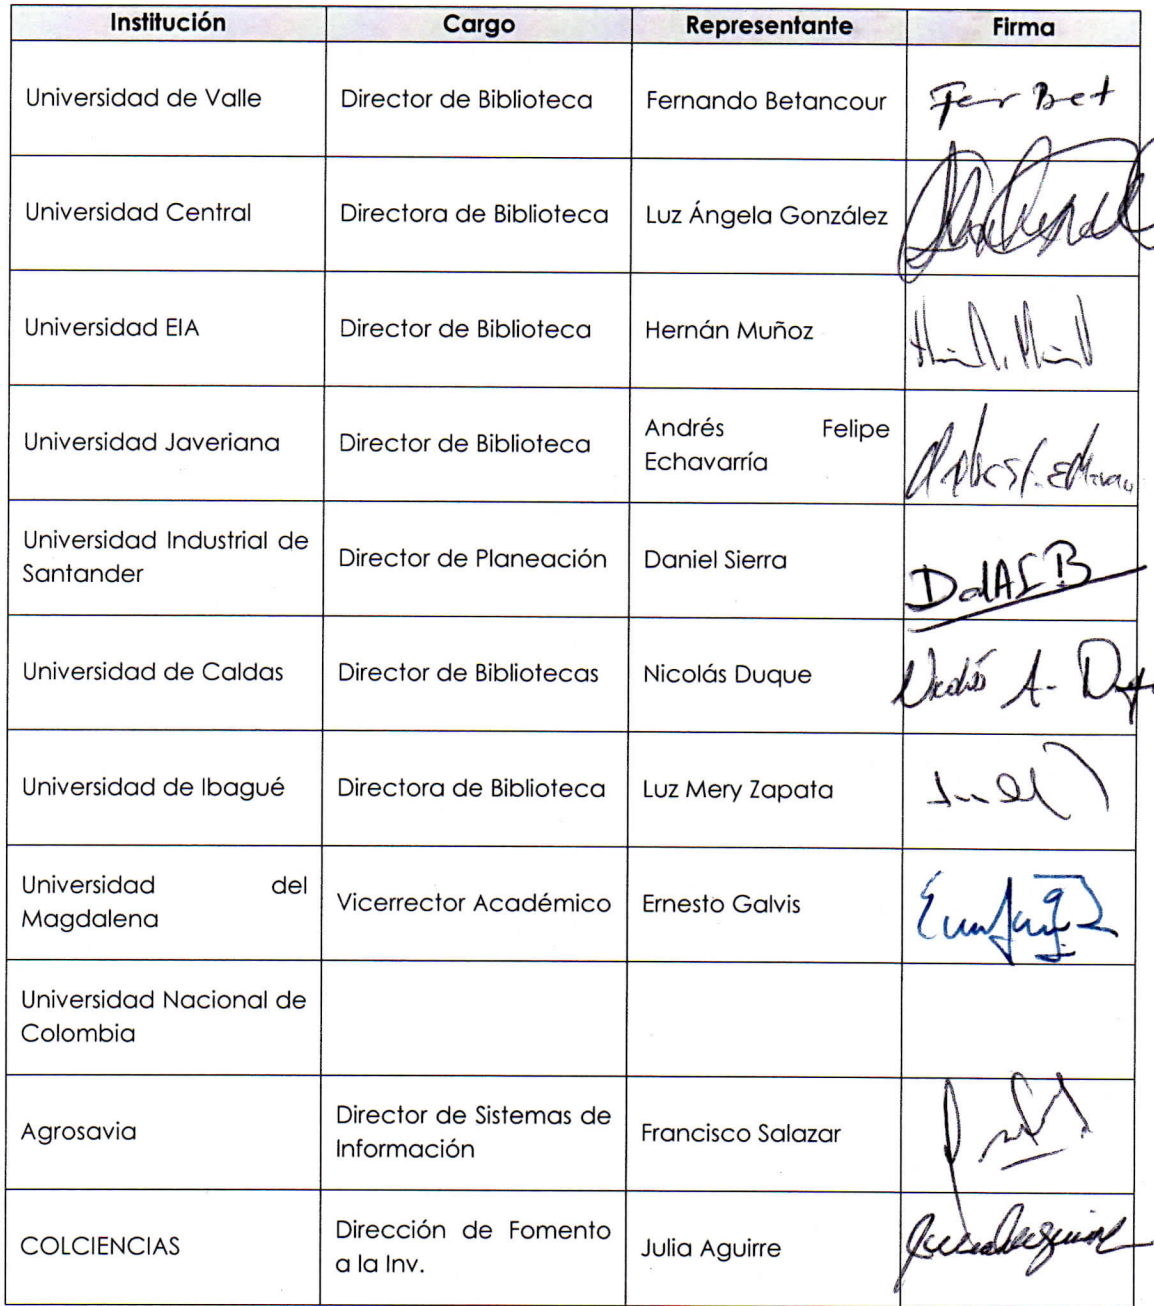 Institución Cargo Representante Firma
Universidad de Valle Director de Biblioteca Fernando Betancour Fer Bet
Universidad Central Directora de Biblioteca Luz Ángela González
Universidad EIA Director de Biblioteca Hernán Muñoz
Universidad Javeriana Director de Biblioteca Andrés Felipe
Echavarría
Universidad Industrial de
Santander Director de Planeación Daniel Sierra
Universidad de Caldas Director de Bibliotecas Nicolás Duque Nicolás A.
Universidad de Ibagué Directora de Biblioteca Luz Mery Zapata
Universidad del
Magdalena Vicerrector Académico Ernesto Galvis
Universidad Nacional de
Colombia
Agrosavia Director de Sistemas de
Información Francisco Salazar
COLCIENCIAS Dirección de Fomento
a la Inv. Julia Aguirre